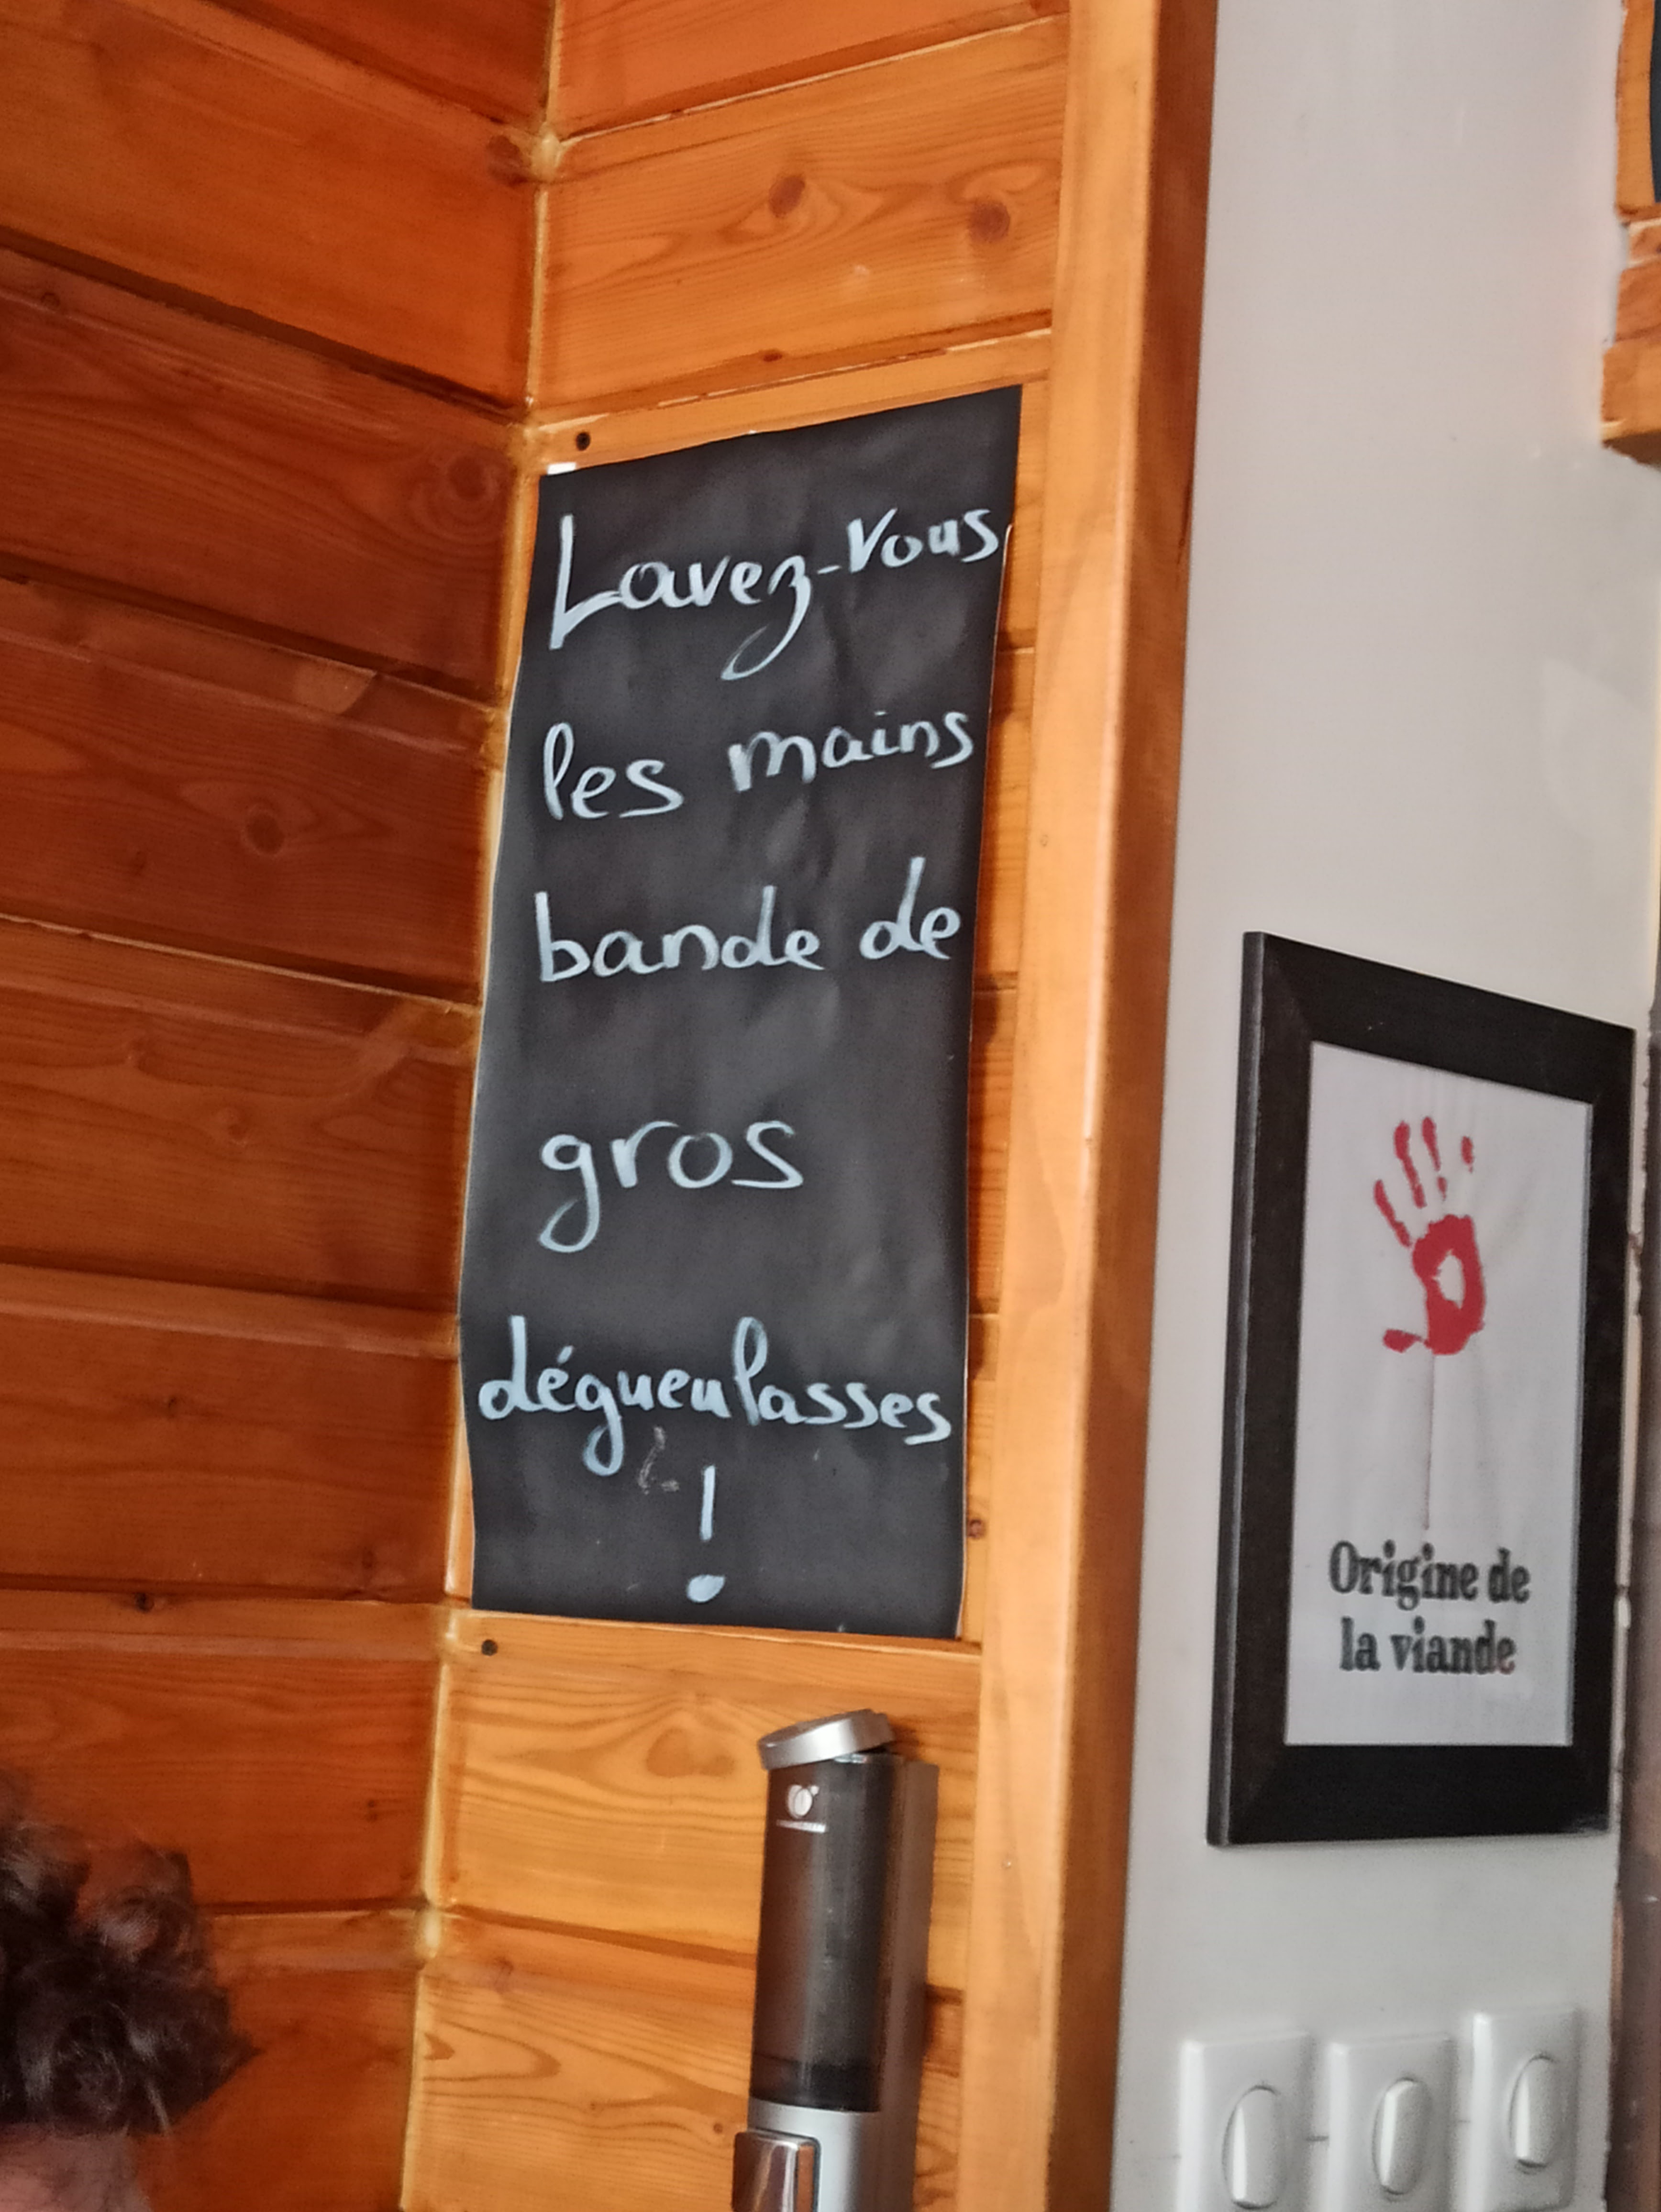 Lavez-vous
les mains
bande de
gros
dégueulasses
!
Origine de
la viande